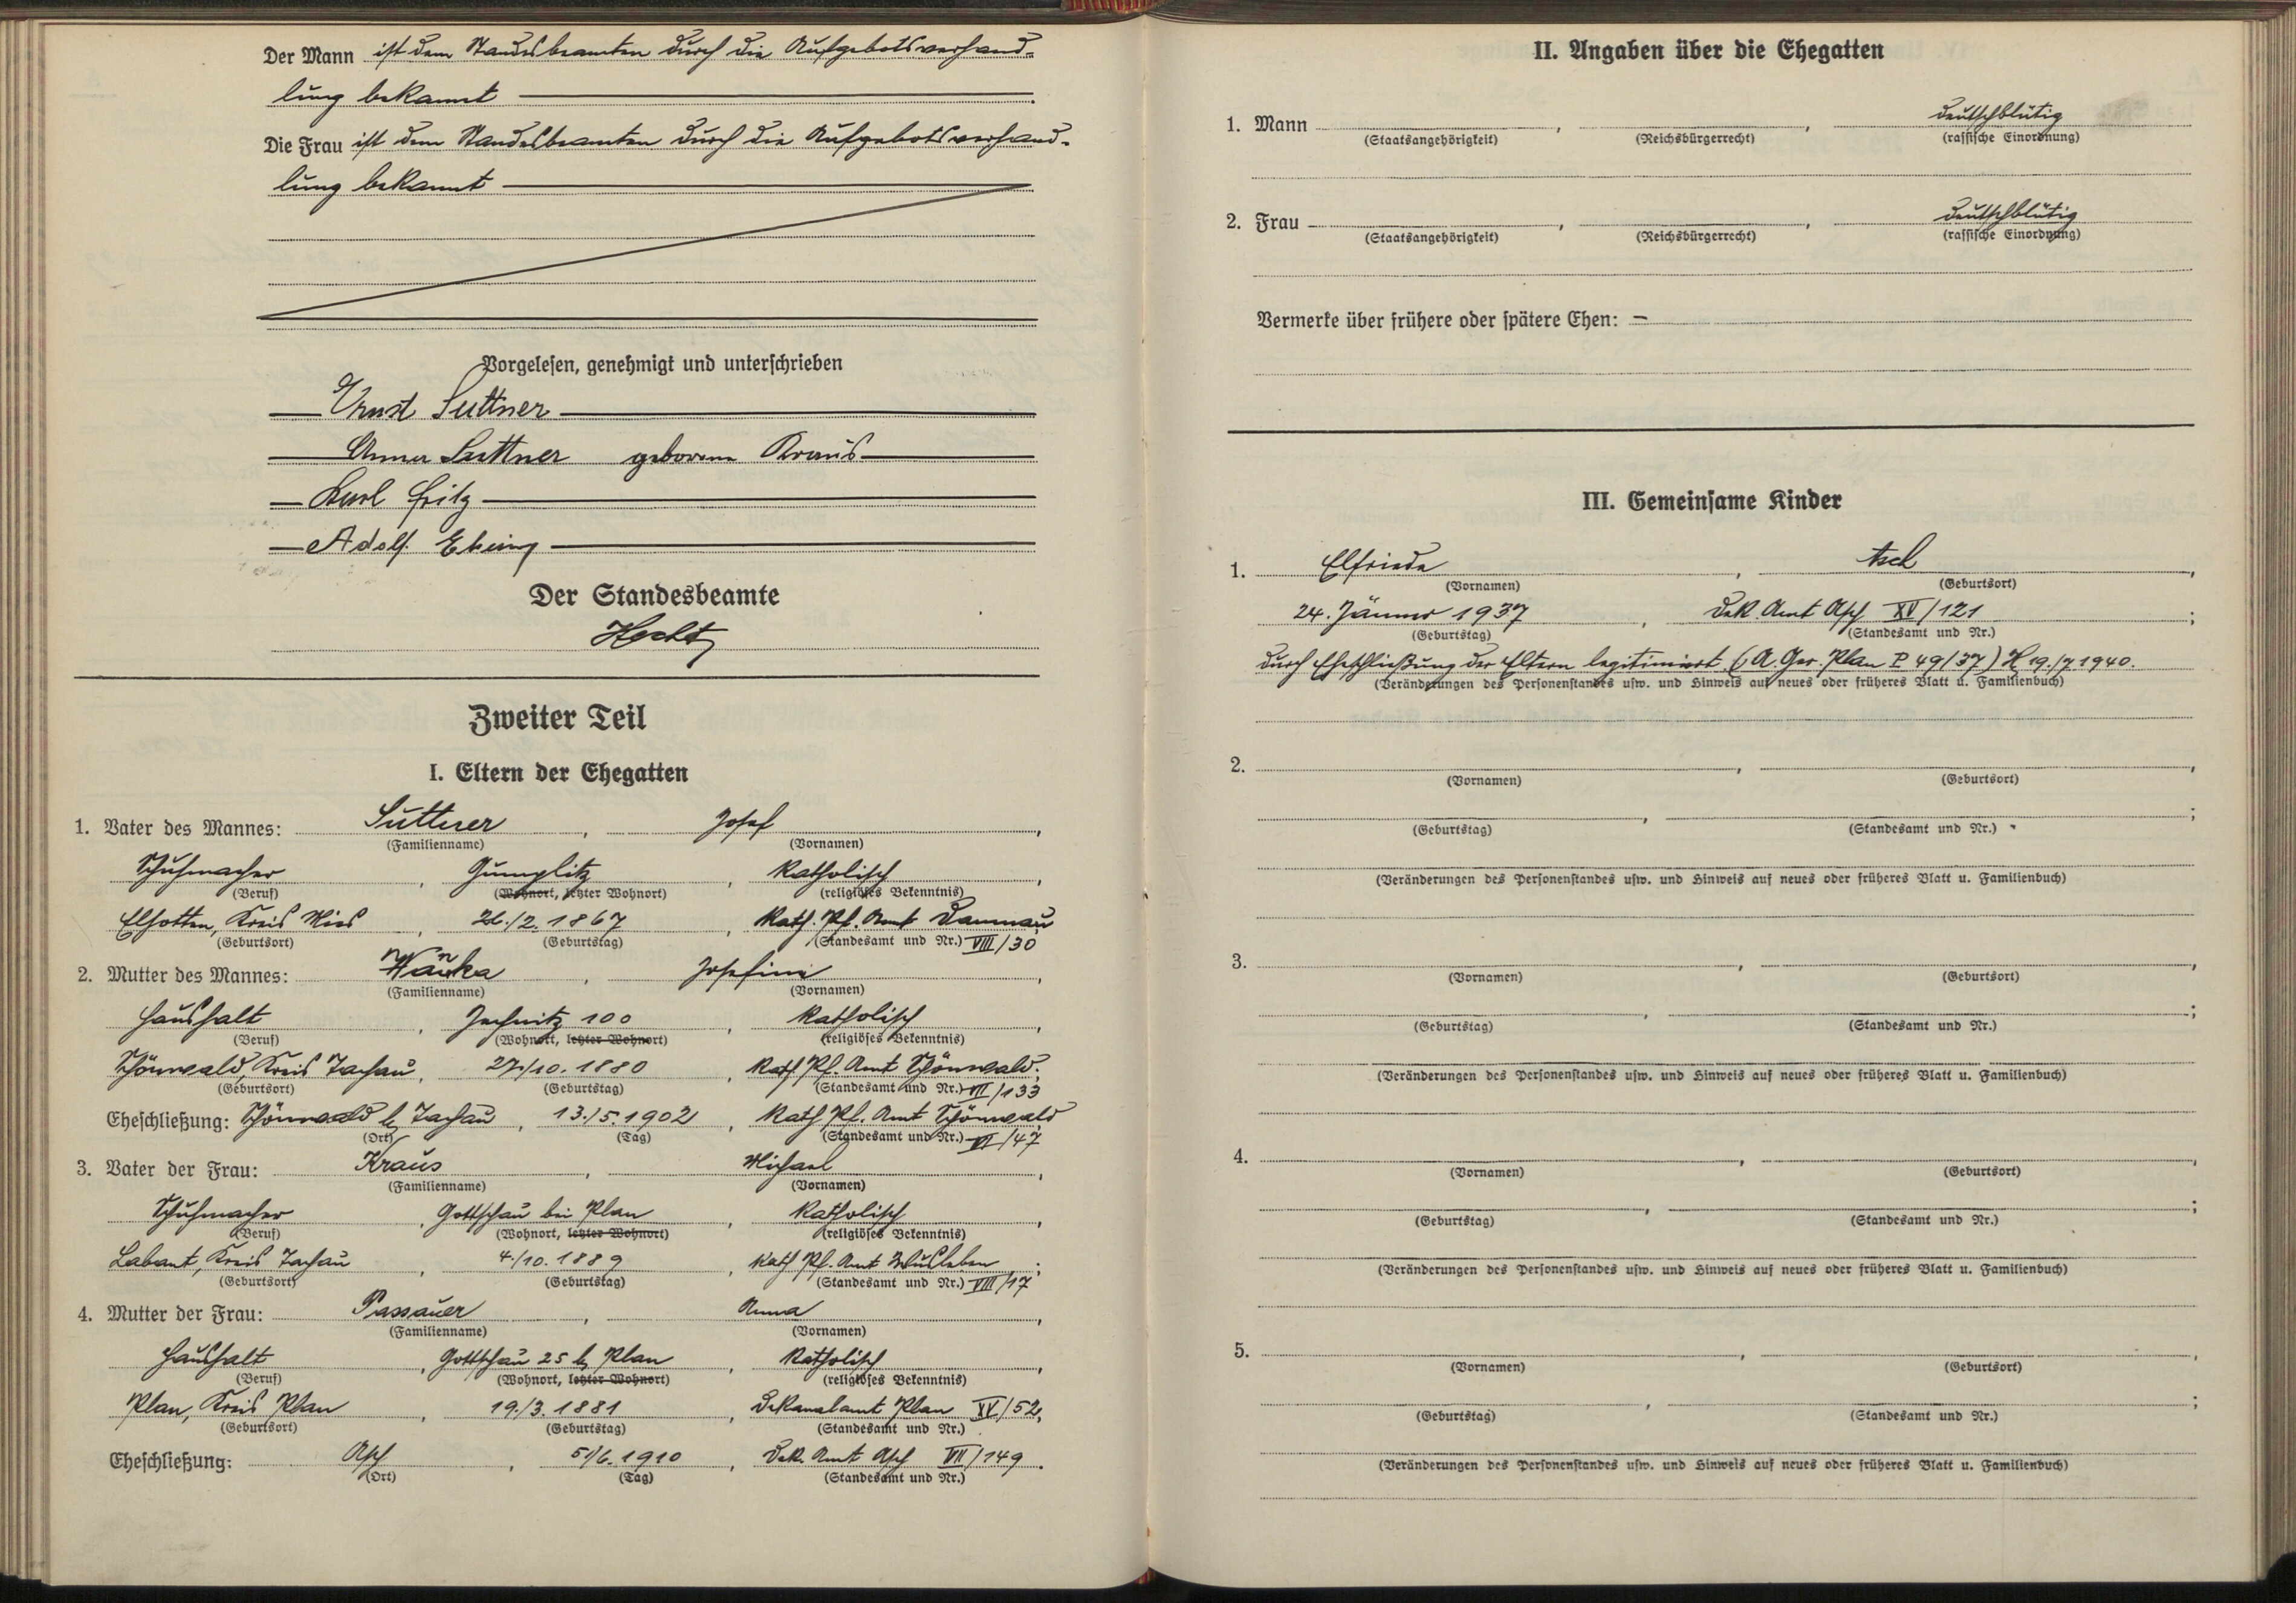 Der Mann ist dem Standesbeamten durch die Aufgebotsverhand-
lung bekannt
Die Frau ist dem Standesbeamten durch die Aufgebotsverhand-
lung bekannt
Vorgelesen, genehmigt und unterschrieben
Ernst Suttner
Anna Suttner geborene Kraus
Karl Fritz
Adolf
Der Standesbeamte
Hecht
Zweiter Teil
I. Eltern der Ehegatten
1. Vater des Mannes: Suttner, Josef,
(Familienname) (Vornamen)
Schuhmacher, Gumplitz, katholisch,
(Beruf) (Wohnort, letzter Wohnort) (religiöses Bekenntnis)
Elhotten, Kreis Mies, 26./2. 1867, Kath. Pf. Amt Damnau
(Geburtsort) (Geburtstag) (Standesamt und Nr.) VIII/30
2. Mutter des Mannes: Josefine,
(Familienname) (Vornamen)
Haushalt, 100, katholisch,
(Beruf) (Wohnort, letzter Wohnort) (religiöses Bekenntnis)
Schönwald, Kreis Tachau, 27./10. 1880, Kath. Pf. Amt Schönwald;
(Geburtsort) (Geburtstag) (Standesamt und Nr.) VII/133
Eheschließung: Schönwald b. Tachau, 13./5. 1902, Kath. Pf. Amt Schönwald
(Ort) (Tag) (Standesamt und Nr.) VI/47
3. Vater der Frau: Kraus, Michael,
(Familienname) (Vornamen)
Schuhmacher, Gottschau bei Plan, katholisch,
(Beruf) (Wohnort, letzter Wohnort) (religiöses Bekenntnis)
Labant, Kreis Tachau, 4./10. 1889, Kath. Pf. Amt;
(Geburtsort) (Geburtstag) (Standesamt und Nr.) VIII/17
4. Mutter der Frau: Passauer, Anna,
(Familienname) (Vornamen)
Haushalt, Gottschau 25 b. Plan, katholisch,
(Beruf) (Wohnort, letzter Wohnort) (religiöses Bekenntnis)
Plan, Kreis Plan, 19./3. 1881, Dekanalamt Plan XV/52;
(Geburtsort) (Geburtstag) (Standesamt und Nr.)
Eheschließung: Asch, 5./6. 1910, Dek. Amt Asch VII/149.
(Ort) (Tag) (Standesamt und Nr.)
II. Angaben über die Ehegatten
1. Mann , , deutschblütig
(Staatsangehörigkeit) (Reichsbürgerrecht) (rassische Einordnung)
2. Frau , , deutschblütig
(Staatsangehörigkeit) (Reichsbürgerrecht) (rassische Einordnung)
Vermerke über frühere oder spätere Ehen: –
III. Gemeinsame Kinder
1. Elfriede, Asch,
(Vornamen) (Geburtsort)
24. Jänner 1937, Dek. Amt Asch XV/121;
(Geburtstag) (Standesamt und Nr.)
durch Eheschließung der Eltern legitimiert (A. Ger. Plan P 49/37) H 19./7. 1940.
(Veränderungen des Personenstandes usw. und Hinweis auf neues oder früheres Blatt u. Familienbuch)
2. , ,
(Vornamen) (Geburtsort)
, ;
(Geburtstag) (Standesamt und Nr.)
(Veränderungen des Personenstandes usw. und Hinweis auf neues oder früheres Blatt u. Familienbuch)
3. , ,
(Vornamen) (Geburtsort)
, ;
(Geburtstag) (Standesamt und Nr.)
(Veränderungen des Personenstandes usw. und Hinweis auf neues oder früheres Blatt u. Familienbuch)
4. , ,
(Vornamen) (Geburtsort)
, ;
(Geburtstag) (Standesamt und Nr.)
(Veränderungen des Personenstandes usw. und Hinweis auf neues oder früheres Blatt u. Familienbuch)
5. , ,
(Vornamen) (Geburtsort)
, ;
(Geburtstag) (Standesamt und Nr.)
(Veränderungen des Personenstandes usw. und Hinweis auf neues oder früheres Blatt u. Familienbuch)